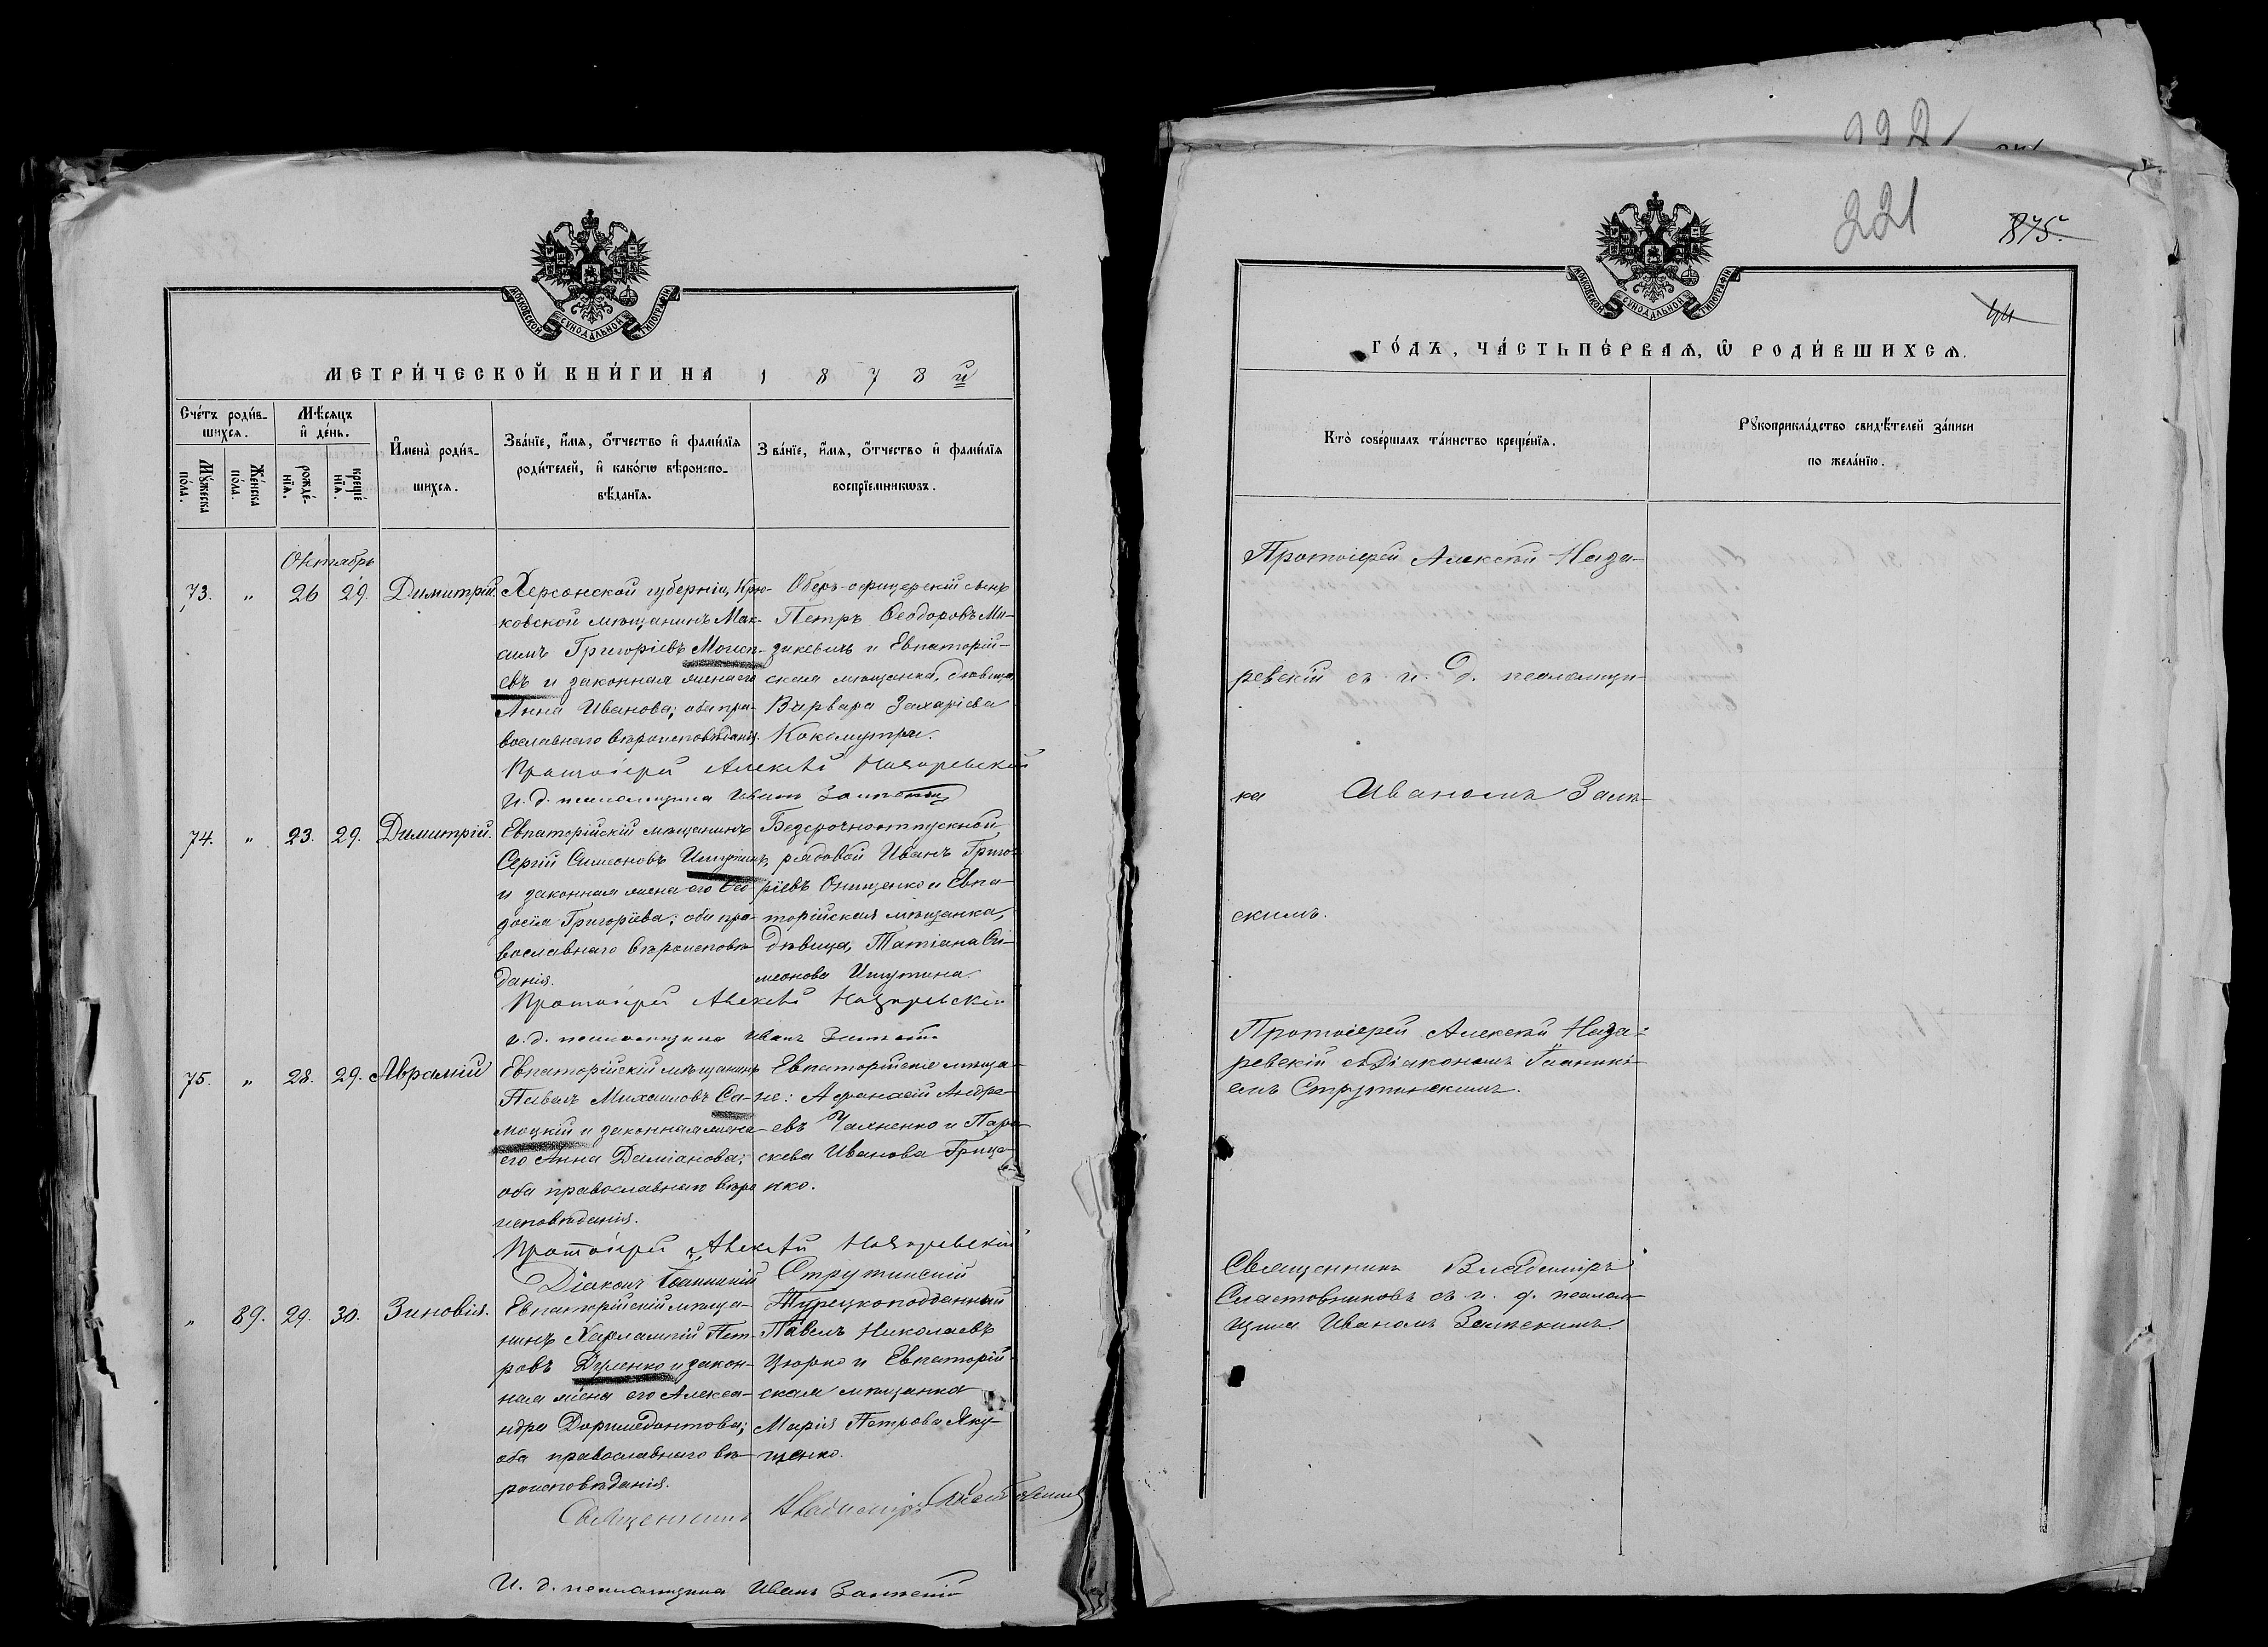 МОСКОВСКОЙ СУНОДАЛЬНОЙ ТИПОГРАФІИ
МЕТРИ́ЧЕСКОЙ КНИ́ГИ НА 1878 й
Сче́тъ роди́в-
шихся.
Мѣ́сяцъ
и҆ де́нь.
Му́жеска
по́ла.
Же́нска
по́ла.
рожде́-
нїя.
креще́
нїя.
И҆мена̀ роди́в-
шихся.
Зва́нїе, и҆́мя, ѻ҆́тчество и҆ фами́лїя
роди́телей, и҆ како́гѡ вѣроиспо-
вѣ́данїя.
Зва́нїе, и҆́мя, ѻ҆́тчество и҆ фами́лїя
воспрїе́мникѡвъ.
Октябрь
73. " 26 29. Димитрій
Херсонской губерніи, Крю-
ковской мѣщанинъ Мак-
симъ Григоріевъ
евъ и законная жена его
Анна Иванова; оба пра-
вославнаго вѣроисповѣданія.
Оберъ-офицерскій сынъ
Петръ Ѳеодоровъ Ми-
зкевичъ и Евпаторій-
ская мѣщанка, дѣвица,
Варвара Захаріева
Протоіерей Алексѣй Назаревскій
И. д. псаломщика Иванъ
74. " 23. 29. Димитрій.
Евпаторійскій мѣщанинъ
Сергій Симеоновъ Ишутинъ,
и законная жена его Ѳео
досія Григоріева; оба пра-
вославнаго вѣроисповѣ
данія.
Безсрочноотпускной
рядовой Иванъ Григо-
ріевъ Онищенко и Евпа-
торійская мѣщанка,
дѣвица, Татіана Си-
меонова Ишутина.
Протоіерей Алексѣй Назаревскій
и. д. псаломщика Иванъ
75. " 28. 29. Аврамій
Евпаторійскій мѣщанинъ
Павелъ Михаиловъ Са-
моцкій и законная жена
его Анна Даміанова;
оба православнаго вѣро
исповѣданія.
Евпаторійскіе мѣща-
не: Аѳанасій Андре-
евъ и Пара-
скева Иванова Грице-
нко.
Протоіерей Алексѣй Назаревскій
Діаконъ Іоанникій Струтинскій
" 89. 29. 30. Зиновія.
Евпаторійскій мѣща-
нинъ Харлампій Пет-
ровъ Дуленко и закон-
ная жена его Алекса-
ндра Доримедонтова;
оба православнаго вѣ-
роисповѣданія.
Турецкоподданный
Павелъ Николаевъ
Цюрко и Евпаторій-
ская мѣщанка
Марія Петрова Яку-
щенко.
Священникъ Владиміръ
И. д. псаломщика Иванъ
221
875.
44
МОСКОВСКОЙ СУНОДАЛЬНОЙ ТИПОГРАФІИ
ГО́ДЪ, ЧА́СТЬ ПЕ́РВАЯ, Ѡ҆ РОДИ́ВШИХСЯ.
Кто̀ соверша́лъ та́инство креще́нїя.
Рꙋкоприкла́дство свидѣ́телей за́писи
по жела́нїю.
Протоіерей Алексѣй Наза-
ревскій съ и. д. псаломщи-
ка Иваномъ Залѣ-
скимъ.
Протоіерей Алексѣй Наза-
ревскій съ Діакономъ Іоанникі-
емъ Струтинскимъ.
Священникъ Владиміръ
Сластовниковъ съ и. д. псалом-
щика Иваномъ Залѣскимъ.